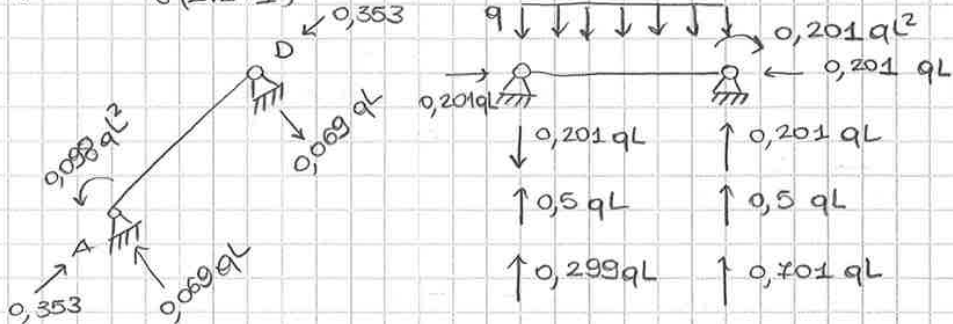 0,353
D
0,069 qL
0,098 qL²
A
0,353
0,069 qL
q
0,201 qL²
0,201qL
0,201 qL
0,201 qL
0,201 qL
0,5 qL
0,5 qL
0,299qL
0,701 qL